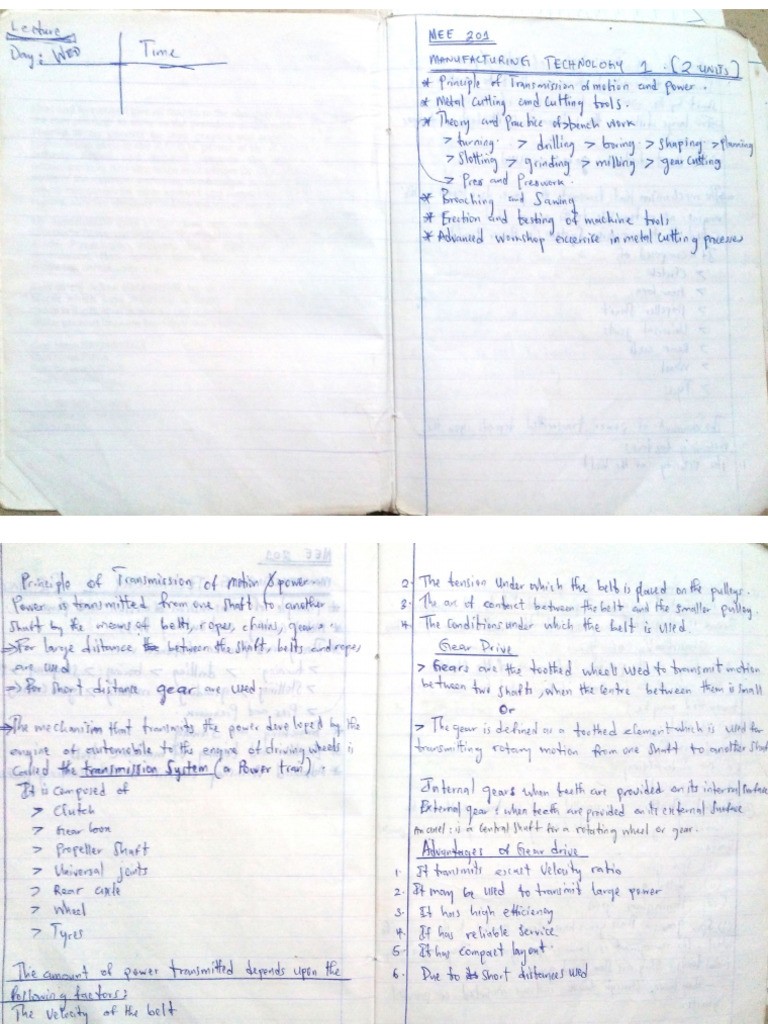 Lecture
Day: WED
Time
MEE 201
MANUFACTURING TECHNOLOGY 1. (2 UNITS)
* Principle of Transmission of motion and Power.
* Metal Cutting and Cutting tools.
* Theory and Practice of bench work
> turning. > drilling > boring > shaping > planning
> Slotting > grinding > milling > gear cutting
> Pres and Preswork.
* Broaching and Sawing
* Erection and testing of machine tools
* Advanced workshop excercise in metal cutting processes
Principle of Transmission of motion & power
Power is transmitted from one shaft to another
shaft by the means of belts, ropes, chains, gear
=> For large distance between the shaft, belts and ropes
are used
=> For short distance gear are used
=> The mechanism that transmits the power developed by the
engine of automobile to the engine of driving wheels is
called the transmission System (or Power tran).
It is composed of
> Clutch
> Gear box
> Propeller Shaft
> Universal joints
> Rear axle
> Wheel
> Tyres
The amount of power transmitted depends upon the
following factors:
The velocity of the belt
2. The tension under which the belt is placed on the pulleys.
3. The arc of contact between the belt and the smaller pulley.
4. The Conditions under which the belt is used.
Gear Drive
> Gears are the toothed wheels used to transmit motion
between two shafts, when the centre between them is small
Or
> The gear is defined as a toothed element which is used for
transmitting rotary motion from one shaft to another shaft
Internal gears when teeth are provided on its internal surface
External gear: when teeth are provided on its external surface
An axel: is a central shaft for a rotating wheel or gear.
Advantages of Gear drive
1. It transmits exact velocity ratio
2. It may be used to transmit large power
3. It has high efficiency
4. It has reliable service
5. It has compact layout.
6. Due to Short distances used